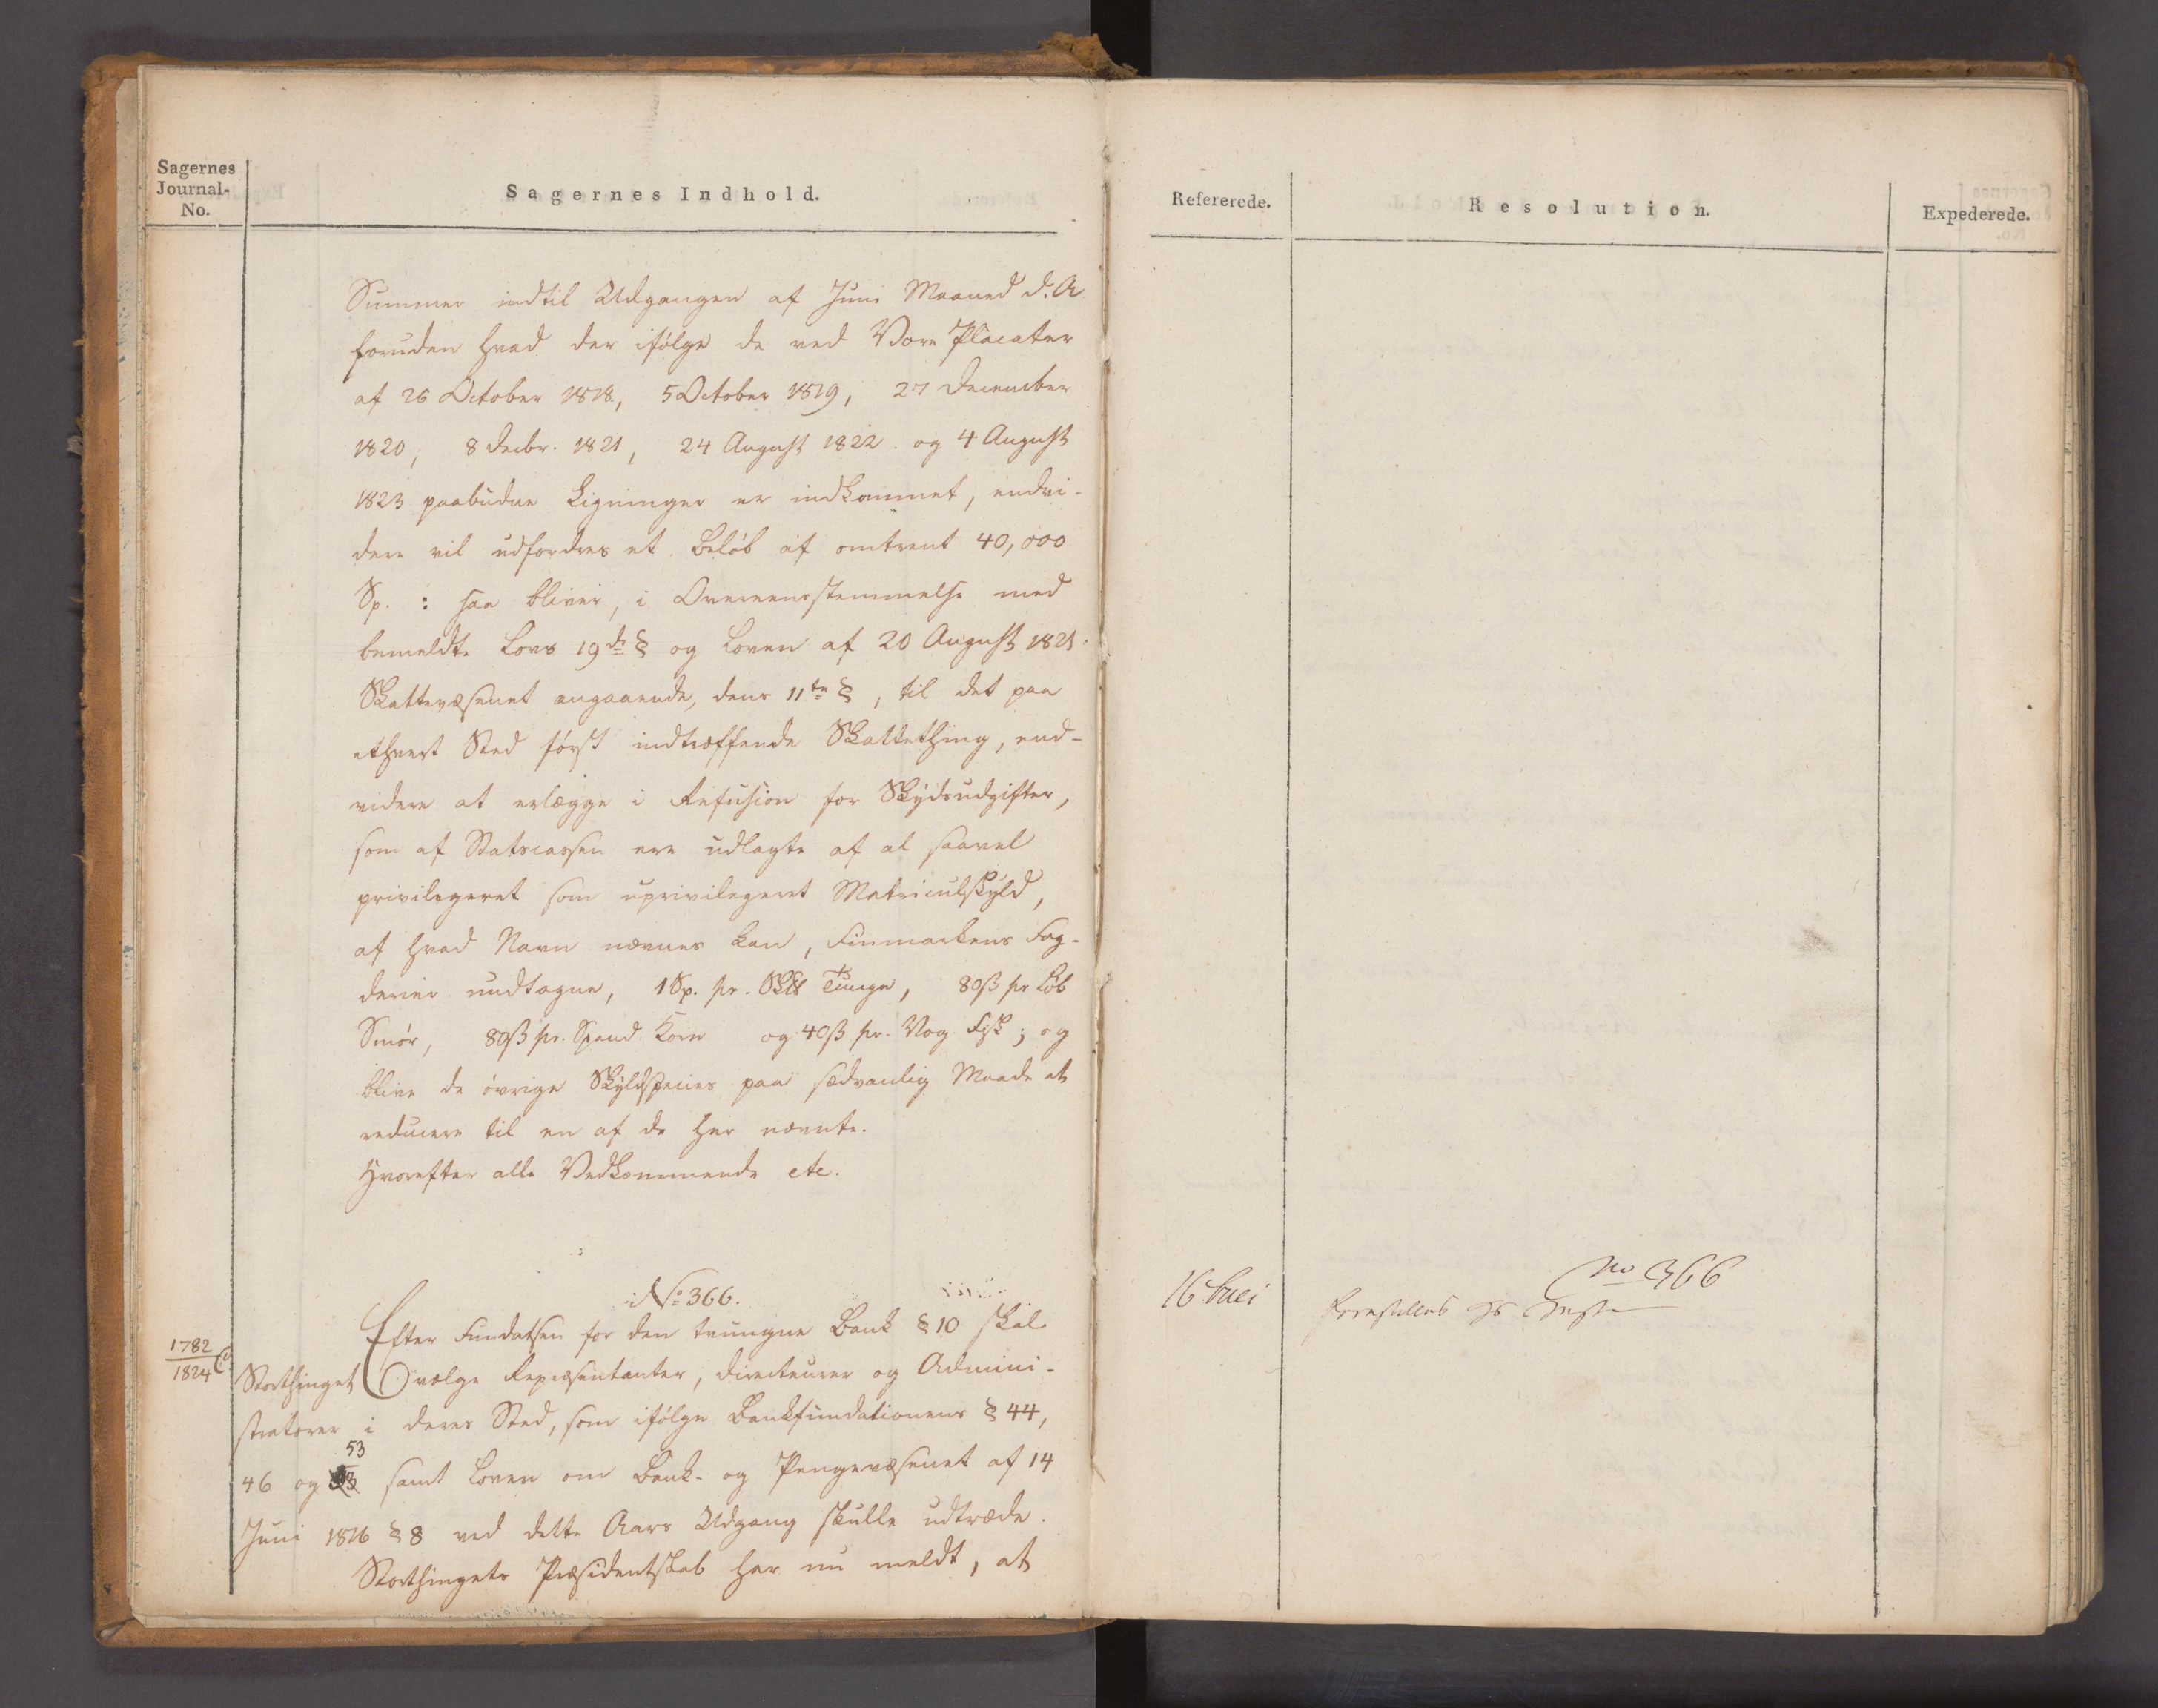 Sagernes
Journal-
No.
Sagernes Indhold.
Summer indtil Udgangen af Juni Maaned d. A
foruden hvad der ifølge de ved Vore Placater
af 26 October 1818, 5 October 1819, 27 December
1820, 8 Decbr. 1821, 24 August 1822 og 4 August
1823 paabudne Ligninger er indkommet, endvi-
dere vil udfordres et Beløb af omtrent 40,000
Sp. : saa bliver, i Overeensstemmelse med
bemeldte Lovs 19de § og Loven af 20 August 1821
Skattevæsenet angaaende, dens 11te §, til det paa
ethvert Sted først indtræffende Skattething, end-
videre at erlægge i Refusion for Skydsudgifter,
som af Statscassen ere udlagte af al saavel
privilegeret som uprivilegeret Matriculskyld,
af hvad Navn nævnes kan, Finmarkens Fog-
derier undtagne, 1 Sp. pr. Sk℔ Tunge, 80 ß pr Løb
Smør, 80 ß pr. Spand Korn og 40 ß pr. Vog Fisk; og
blive de øvrige Skyldspecies paa sædvanlig Maade at
reducere til en af de her nævnte.
Hvorefter alle Vedkommende etc.
No 366.
Efter Fundatsen for den tvungne Bank § 10 skal
1782
1824
Storthinget vælge Repræsentanter, Directeurer og Admini-
stratorer i deres Sted, som ifølge Bankfundationens § 44,
53
46 og samt Loven om Bank- og Pengevæsenet af 14
Juni 1816 § 8 ved dette Aars Udgang skulle udtræde.
Storthingets Præsidentskab har nu meldt, at
Refererede.
Resolution.
Expederede.
16
No 366